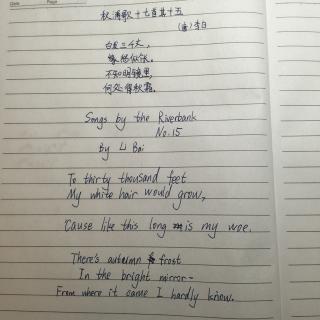 Date
Page
秋浦歌十七首其十五
(唐)李白
白发三千丈,
缘愁似个长。
不知明镜里,
何处得秋霜。
Songs by the Riverbank
No.15
By Li Bai
To thirty thousand feet
My white hair would grow,
'Cause like this long is my woe.
There's autumn frost
In the bright mirror-
From where it came I hardly know.